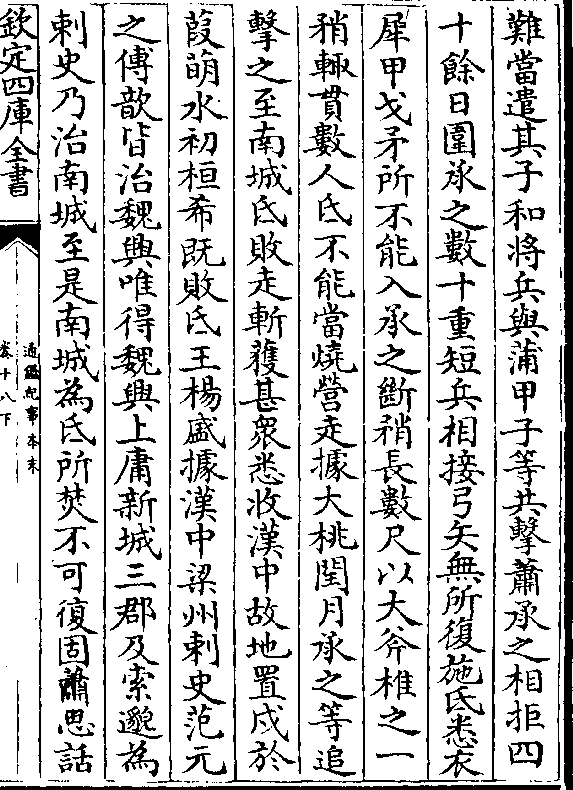 難當遣其子和將兵與蒲甲子等共擊蕭承之相拒四
十餘日圍承之數十重短兵相接弓矢無所復施氐悉衣
犀甲戈矛所不能入承之斷矟長數尺以大斧椎之一
矟輙貫數人氐不能當燒營走據大桃閏月承之等追
擊之至南城氐敗走斬獲甚衆悉收漢中故地置戍於
葭萌水初桓希既敗氐王楊盛據漢中梁州刺史范元
之傅歆皆治魏興唯得魏興上庸新城三郡及索邈為
刺史乃治南城至是南城為氐所焚不可復固蕭思話
欽定四庫全書
通鑑紀事本末
卷十八下